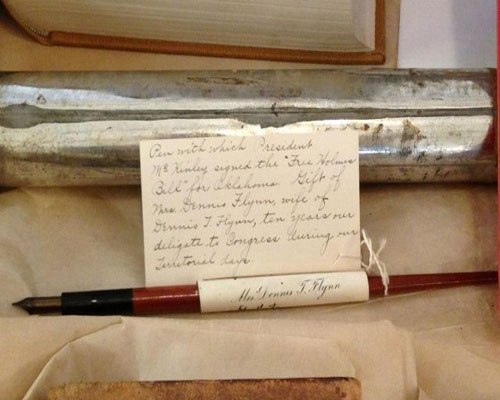 Pen with which President
McKinley signed the "Free Homes
Bill" for Oklahoma Gift of
Mrs. Dennis Flynn, wife of
Dennis T. Flynn, ten years our
deligate to Congress during our
Territorial days.
Mrs. Dennis T. Flynn